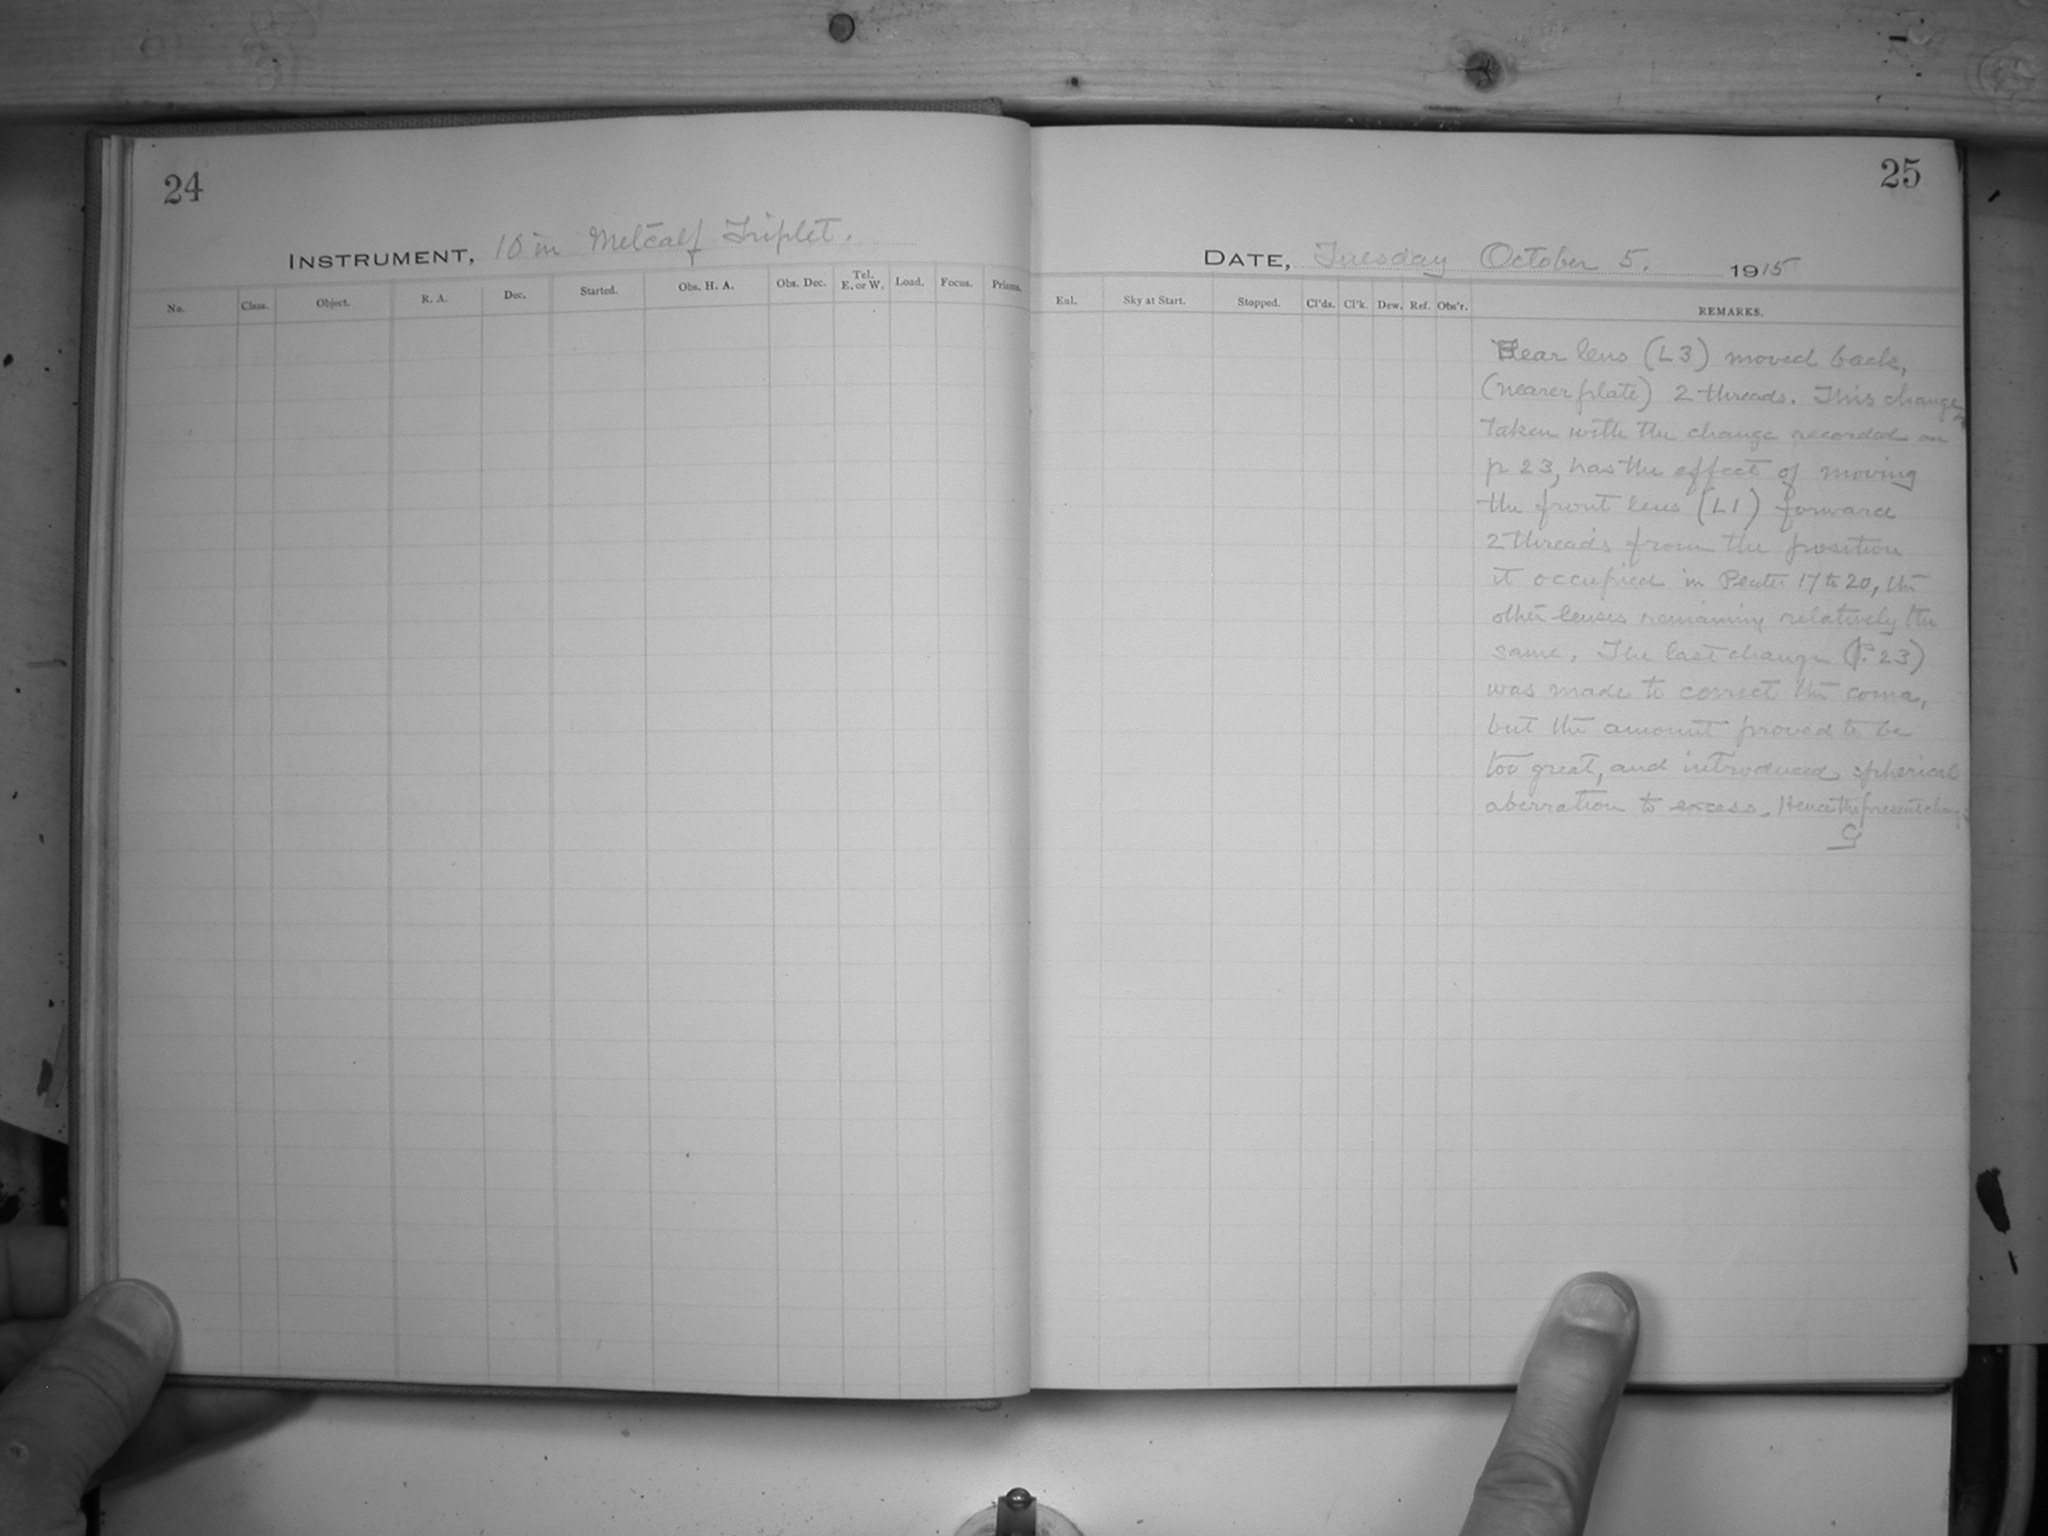 24
INSTRUMENT, 10 in Metcalf Triplet.
No. Class. Object. R. A. Dec. Started. Obs. H. A. Obs. Dec. Tel. E. or W. Load. Focus. Prisms.
25
DATE, Tuesday October 5. 1915
Eal. Sky at Start. Stopped. Cl'ds. Cl'k. Dew. Ref. Obs'r. REMARKS.
Rear lens (L3) moved back,
(nearer plate) 2 threads. This change,
taken with the change recorded on
p 23, has the effect of moving
the front lens (L1) forward
2 threads from the position
it occupied in Plates 17 to 20, the
other lenses remaining relatively the
same. The last change (P. 23)
was made to correct the coma,
but the amount proved to be
too great, and introduced spherical
aberration to excess. Hence the present change
G